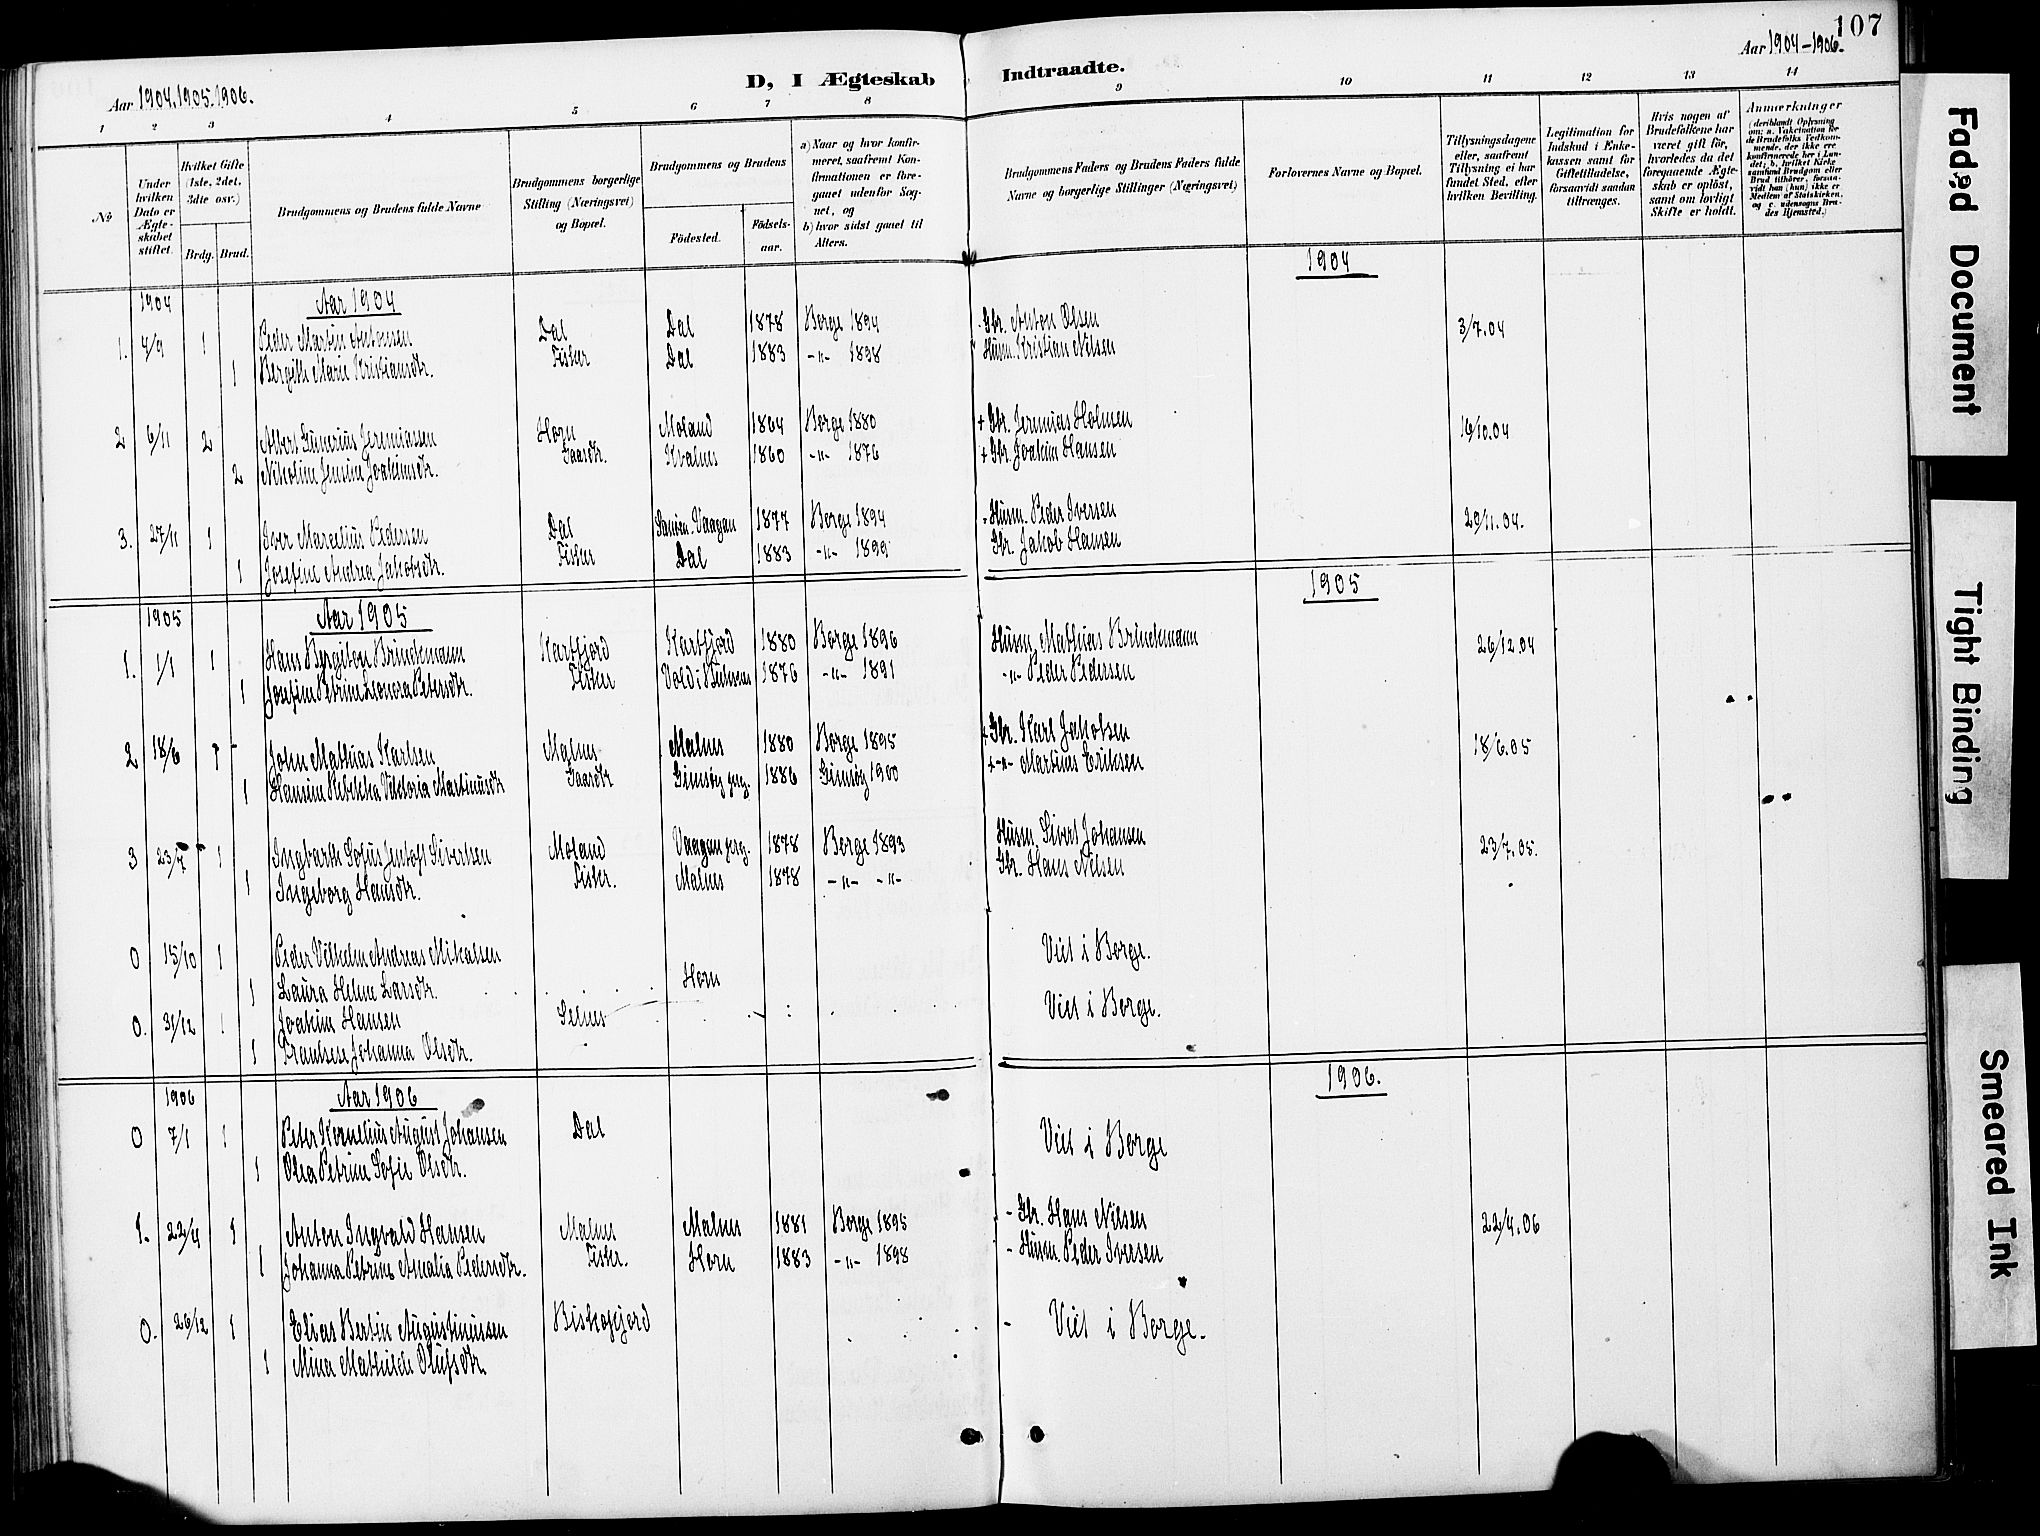 107
Aar 1904.1905.1906.
D, I Ægteskab
Indtraadte.
Aar 1904-1906.
1 2 3 4 5 6 7 8 9 10 11 12 13 14
No
Under hvilken Dato er Ægteskabet stiftet.
Hvilket Gifte (1ste, 2det, 3die osv.)
Brdg. Brud.
Brudgommens og Brudens fulde Navne
Brudgommens borgerlige Stilling (Næringsvei) og Bopæl.
Brudgommens og Brudens
Fødested.
Fødselsaar.
a) Naar og hvor konfirmeret, saafremt Konfirmationen er foregaaet udenfor Sognet, og
b) hvor sidst gaaet til Alters.
Brudgommens Faders og Brudens Faders fulde Navne og borgerlige Stillinger (Næringsvei)
Forlovernes Navne og Bopæl.
Tillysningsdagene eller, saafremt Tillysning ei har fundet Sted, efter hvilken Bevilling.
Legitimation for Indskud i Enkekassen samt for Giftetilladelse, forsaavidt saadan tiltrænges.
Hvis nogen af Brudefolkene har været gift før, hvorledes da det foregaaende Ægteskab er opløst, samt om lovligt Skifte er holdt.
Anmærkninger (deriblandt Oplysning om: a. Vakcination for de Brudefolks Vedkommende, der ikke ere konfirmerede her i Landet; b. hvilket Kirkesamfund Brudgom eller Brud tilhører, forsaavidt han (hun) ikke er Medlem af Statskirken, og c. udensogns Brudes Hjemsted.)
1904 Aar 1904 1904
1. 4/9 1 Peder Martin Antonsen Dal Dal 1878 Borge 1894 Gbr. Anton Olsen 3/7.04
1 Bergith Marie Kristiansdtr. Fisker Dal 1883 -"- 1898 Husm. Kristian Nilsen
2 6/11 2 Albert Gunerius Jeremiassen Horn Moland 1864 Borge 1880 + Gbr. Jeremias Holmen 16/10.04
2 Nikoline Jensine Joakimsdtr. Gaardbr. Kvalnes 1860 -"- 1876 + Gbr. Joakim Hansen
3. 27/11 1 Iver Marelius Pedersen Dal Vaagan 1877 Borge 1894 - Husm. Peder Iversen 20/11.04.
1 Josefine Andrea Jakobsdtr. Fisker Dal 1883 -"- 1899 Gbr. Jakob Hansen
1905 Aar 1905 1905
1. 1/1 1 Hans Bergiton Brinckmann Kartfjord Kartfjord 1880 Borge 1896 Husm. Mathias Brinckmann 26/12.04
1 Josefine Petrine Leonora Petersdtr. Fisker Vold i 1876 -"- 1891 -"- Peder Pedersen
2 18/6 1 - John Mathias Karlsen Malnes Malnes 1880 Borge 1895 + Gbr. Karl Jakobsen 18/6.05
1 Hansine Rebekka Viktoria Martinusdtr Gaardbr Gimsøy prgj. 1886 Gimsøy 1900 + -"- Martinus Eriksen
3 23/7 1 Ingbarth Sofus Jentoft Sivertsen Moland Vaagan prgj. 1878 Borge 1893 Husm. Sivert Johansen 23/7.05.
1 Ingeborg Hansdtr. Fisker. Malnes 1878 -"- -"- Gbr. Hans Nilsen
0 15/10 1 Peder Vilhelm Andreas Mikalsen Viet i Borge.
1 Laura Helene Larsdtr. Horn
0. 31/12 1 Joakim Hansen Selnes Viet i Borge.
1 Johanna Olsdtr.
1906 Aar 1906 1906.
0 7/1 1 Peter Kornelius August Johansen Dal Viet i Borge
1 Olea Petrine Sofie Olsdtr.
1. 22/4 1 Anton Ingvald Hansen Malnes Malnes 1881 Borge 1895 - Gbr. Hans Nilsen 22/4.06
1 Johanna Petrine Amalia Pedersdtr. Fisker. Horn 1883 -"- 1898 - Husm. Peder Iversen
0. 26/12 1 Elias Bertin Augustinussen Viet i Borge.
1 Mina Mathilde Olufsdtr
Faded Document
Tight Binding
Smeared Ink